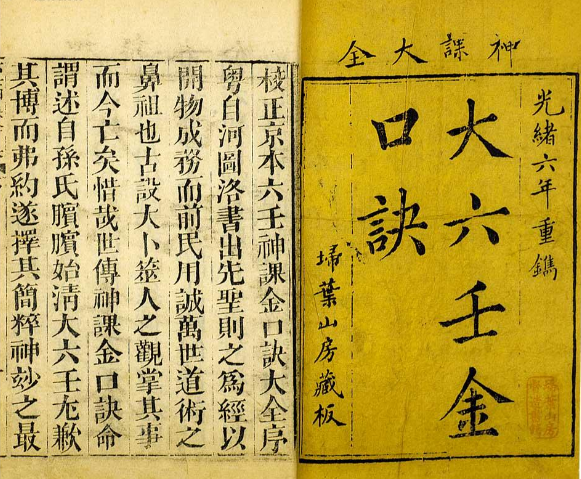 神課大全
光緒六年重鐫
大六壬金
口訣
埽葉山房藏板
校正京本六壬神課金口訣大全序
粵自河圖洛書出先聖則之爲經以
開物成務而前民用誠萬世道術之
鼻祖也古設大卜簭人之觀掌其事
而今亡矣惜哉世傳神課金口訣命
謂述自孫氏臏臏始淸大六壬尨歉
其博而弗約遂擇其簡粹神妙之最